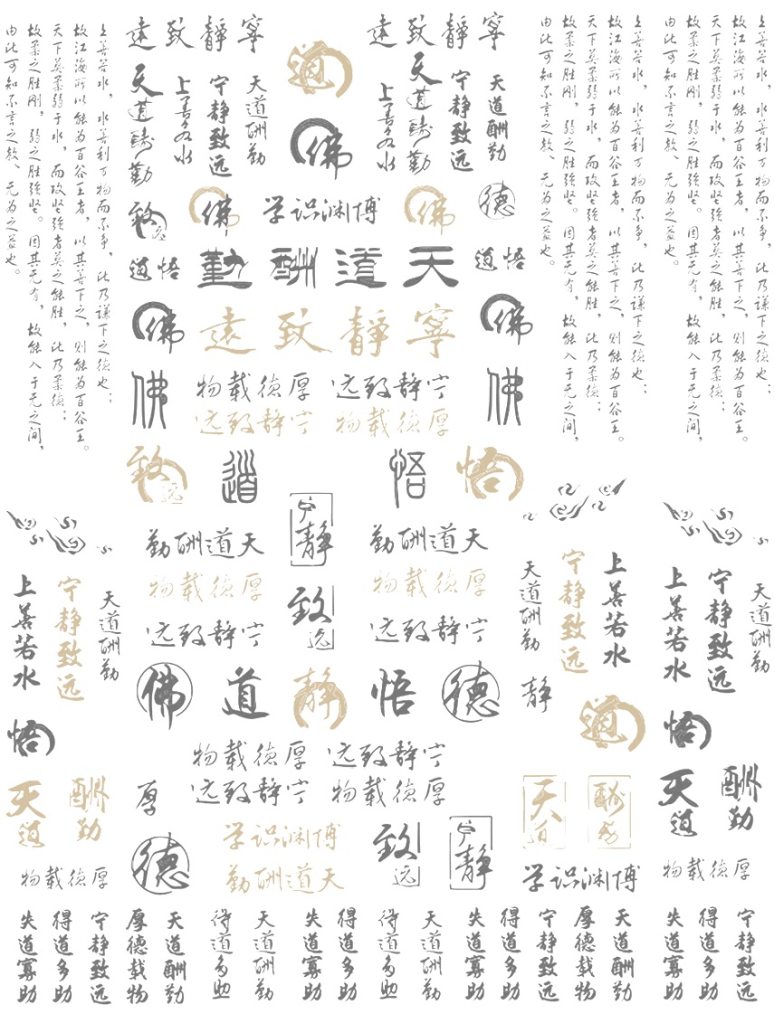 上善若水，水善利万物而不争，此乃谦下之德也；
故江海所以能为百谷王者，以其善下之，则能为百谷王。
天下莫柔弱于水，而攻坚强者莫之能胜，此乃柔德；
故柔之胜刚，弱之胜强坚。因其无有，故能入于无之间，
由此可知不言之教、无为之益也。
寧靜致遠
天道酬勤
宁静致远
上善若水
天道酬勤
道
佛
寧靜致遠
天道酬勤
宁静致远
天道酬勤
上善若水
上善若水，水善利万物而不争，此乃谦下之德也；
故江海所以能为百谷王者，以其善下之，则能为百谷王。
天下莫柔弱于水，而攻坚强者莫之能胜，此乃柔德；
故柔之胜刚，弱之胜强坚。因其无有，故能入于无之间，
由此可知不言之教、无为之益也。
上善若水，水善利万物而不争，此乃谦下之德也；
故江海所以能为百谷王者，以其善下之，则能为百谷王。
天下莫柔弱于水，而攻坚强者莫之能胜，此乃柔德；
故柔之胜刚，弱之胜强坚。因其无有，故能入于无之间，
由此可知不言之教、无为之益也。
致远
佛
博渊识学
佛
德
悟道
天道酬勤
悟道
佛
寧靜致遠
佛
佛
宁静致远
厚德载物
佛
厚德载物
宁静致远
致远
道
悟
悟
宁静
天道酬勤
天道酬勤
厚德载物
厚德载物
致远
宁静致远
宁静致远
天道酬勤
宁静致远
上善若水
上善若水
宁静致远
天道酬勤
天道酬勤
宁静致远
上善若水
佛
道
静
悟
德
静
道
悟
悟
宁静致远
厚德载物
厚德载物
宁静致远
天道
酬勤
厚
天道
酬勤
天道
酬勤
德
博渊识学
天道酬勤
致远
宁静
厚德载物
博渊识学
厚德载物
失道寡助
得道多助
宁静致远
厚德载物
天道酬勤
得道多助
天道酬勤
失道寡助
得道多助
得道多助
天道酬勤
失道寡助
得道多助
宁静致远
厚德载物
天道酬勤
失道寡助
得道多助
宁静致远